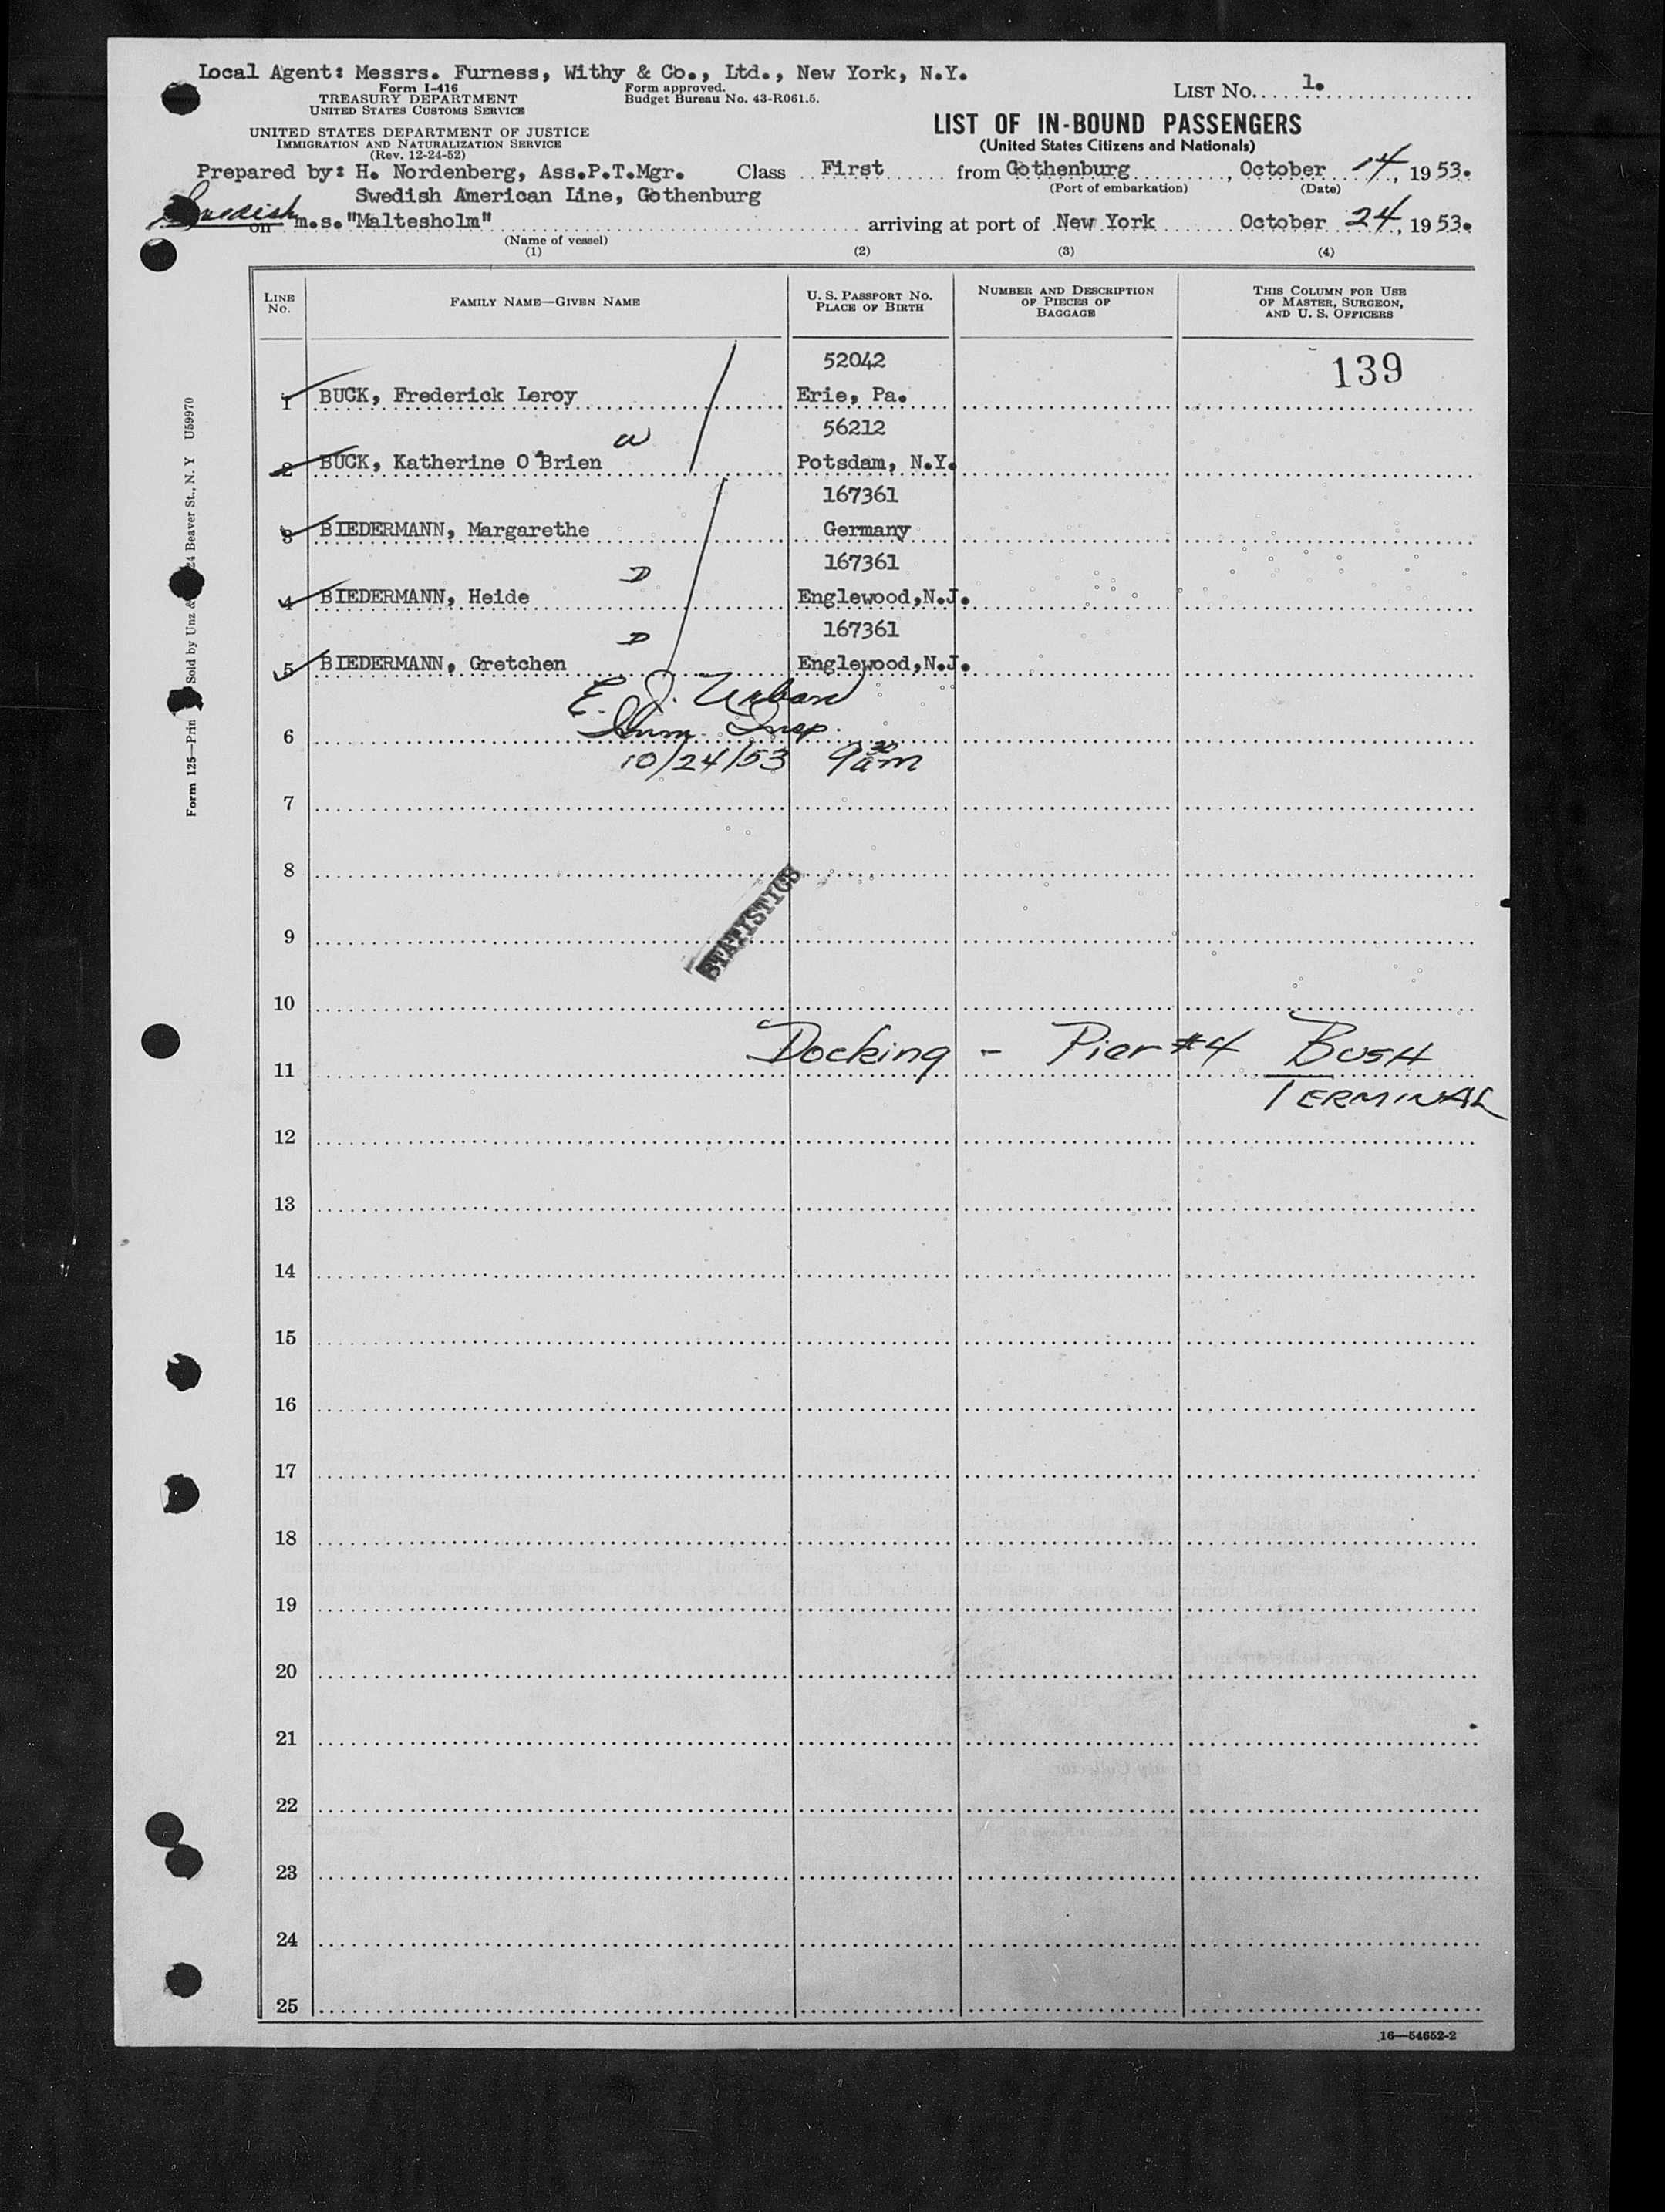 Local Agent: Messrs. Furness, Withy & Co., Ltd., New York, N.Y.
Form I-416
TREASURY DEPARTMENT
UNITED STATES CUSTOMS SERVICE
Form approved.
Budget Bureau No. 43-R061.5.
LIST No. 1.
UNITED STATES DEPARTMENT OF JUSTICE
IMMIGRATION AND NATURALIZATION SERVICE
(Rev. 12-24-52)
LIST OF IN-BOUND PASSENGERS
(United States Citizens and Nationals)
Prepared by: H. Nordenberg, Ass.P.T.Mgr. Class First from Gothenburg, October 14, 1953.
(Port of embarkation) (Date)
Swedish American Line, Gothenburg
Swedish on m.s."Maltesholm" arriving at port of New York October 24, 1953.
(Name of vessel)
(1) (2) (3) (4)
LINE No. FAMILY NAME—GIVEN NAME U. S. PASSPORT NO. PLACE OF BIRTH NUMBER AND DESCRIPTION OF PIECES OF BAGGAGE THIS COLUMN FOR USE OF MASTER, SURGEON, AND U. S. OFFICERS
52042 139
1 BUCK, Frederick Leroy Erie, Pa.
56212
W
2 BUCK, Katherine O'Brien Potsdam, N.Y.
167361
3 BIEDERMANN, Margarethe Germany
167361
D
4 BIEDERMANN, Heide Englewood,N.J.
167361
D
5 BIEDERMANN, Gretchen Englewood,N.J.
E. J. Urban
6 Imm. Insp.
10/24/53 9 30 am
7
8
STATISTICS
9
10
Docking - Pier #4 BUSH
11
TERMINAL
12
13
14
15
16
17
18
19
20
21
22
23
24
25
16—54652-2
Form 125—Prin Sold by Unz & 24 Beaver St., N. Y U59970